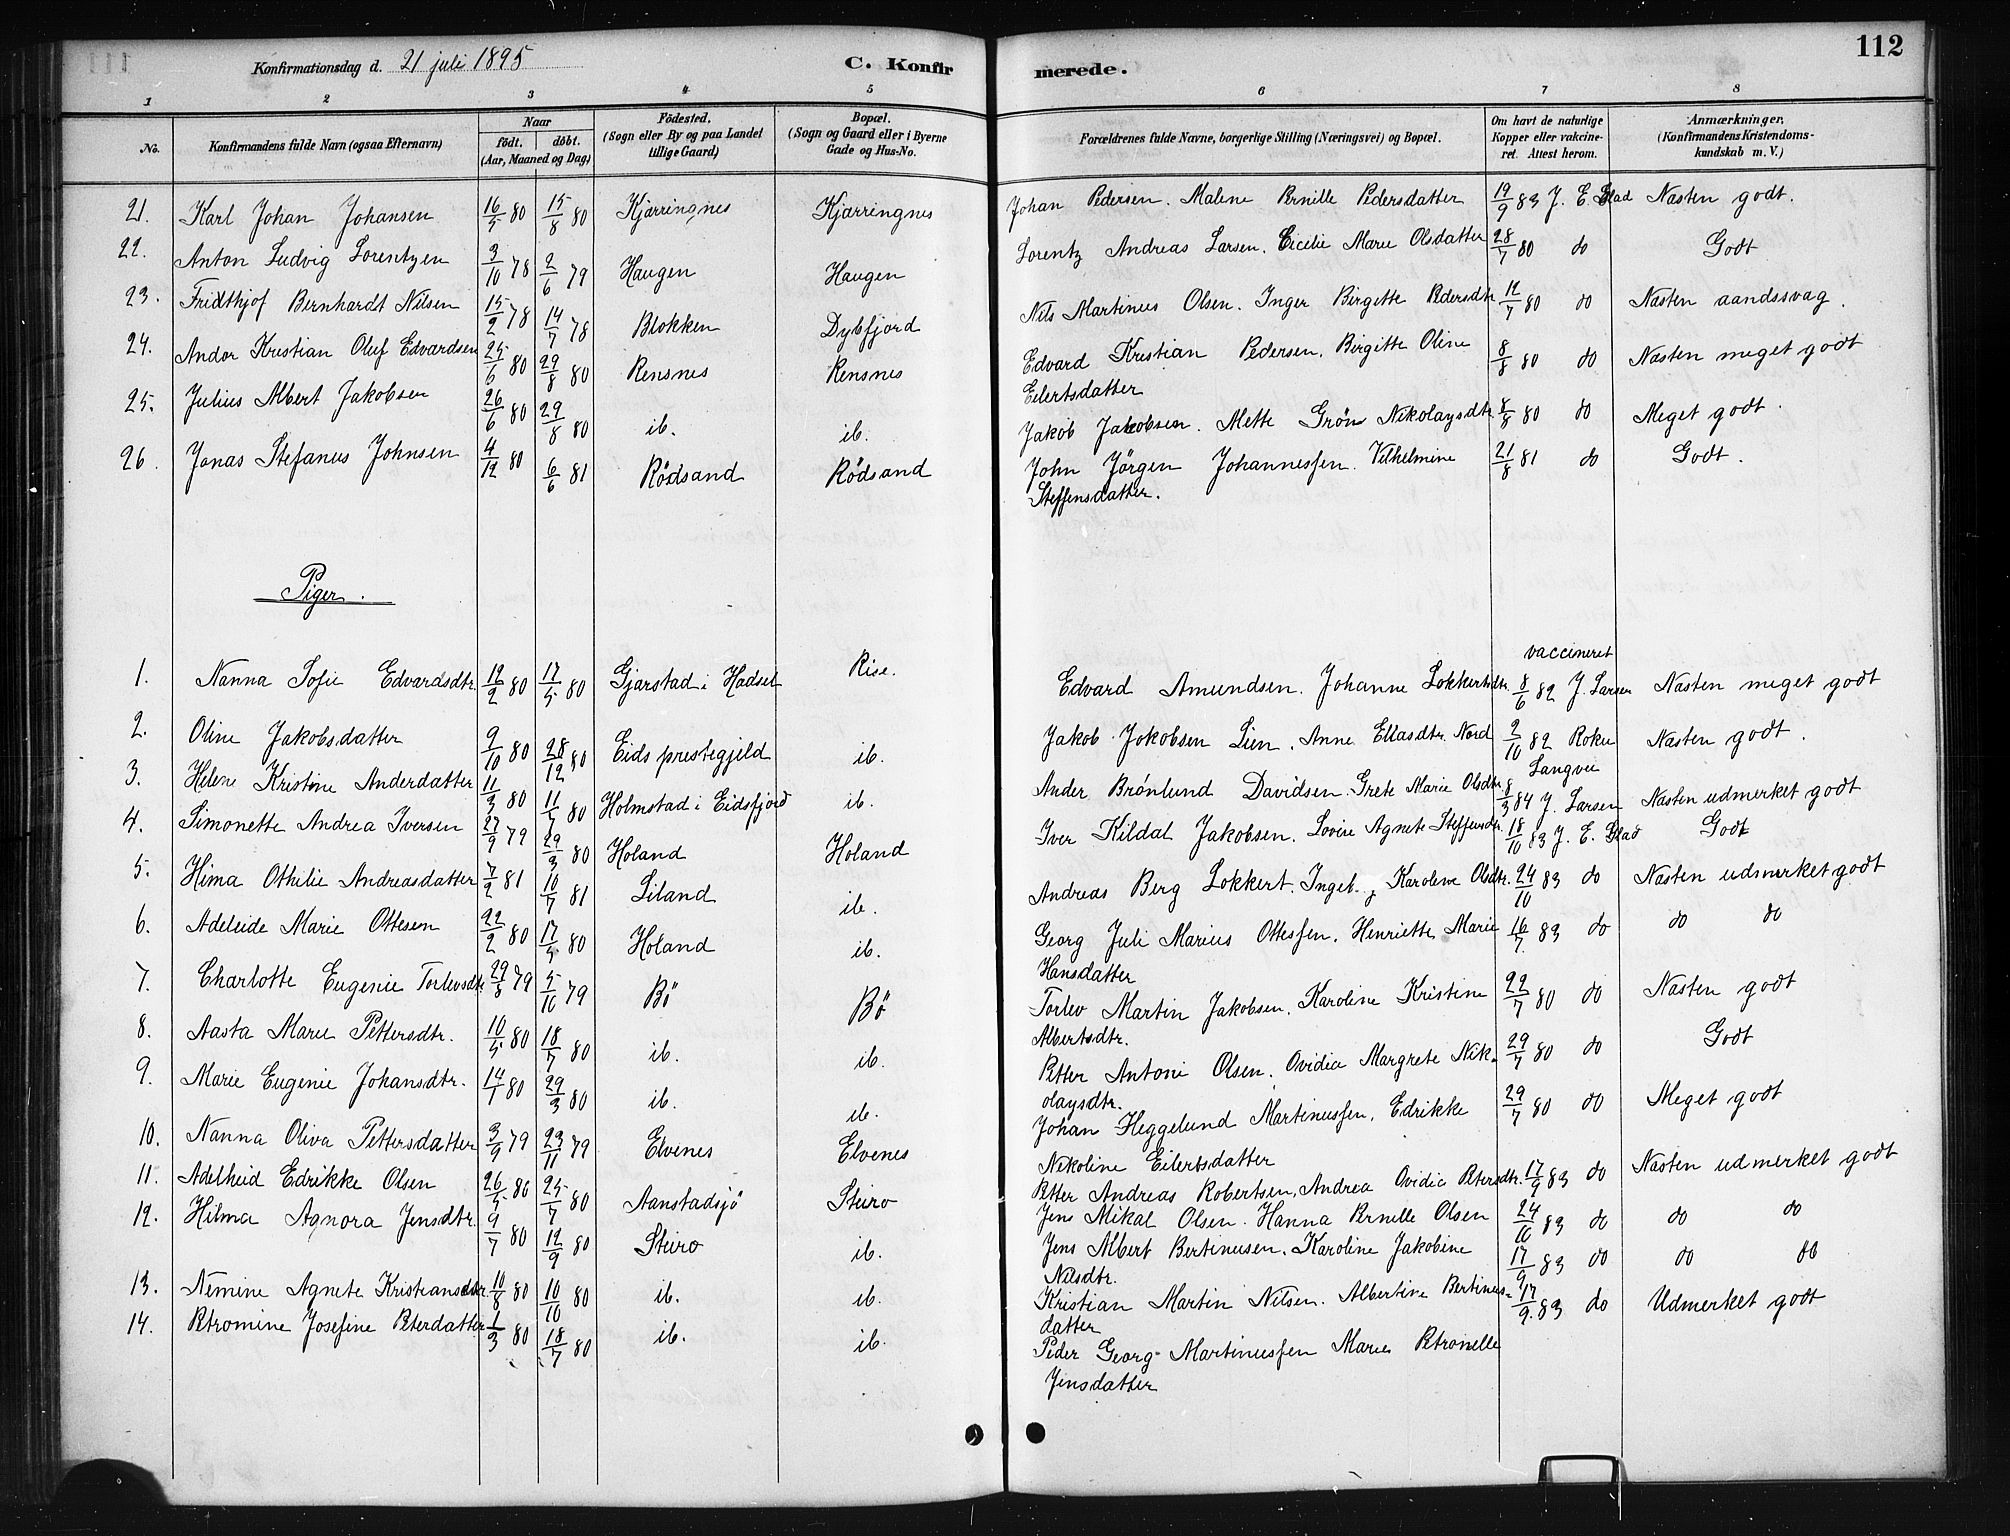 112
Konfirmationsdag d. 21 juli 1895 C. Konfirmerede.
1 2 3 4 5 6 7 8
No. Konfirmandens fulde Navn (ogsaa Efternavn) Naar födt. döbt. (Aar, Maaned og Dag) Födested. (Sogn eller By og paa Landet tillige Gaard) Bopæl. (Sogn og Gaard eller i Byerne Gade og Hus-No. Forældrenes fulde Navne, borgerlige Stilling (Næringsvei) og Bopæl. Om havt de naturlige Kopper eller vakcineret. Attest herom. Anmærkninger. (Konfirmandens Kristendomskundskab m. V.)
21. Karl Johan Johansen 16/5 80 15/8 80 Kjærringnes Kjærringnes Johan Pedersen. Malene Pernille Pedersdatter 19/9 83 J. E. Glad Næsten godt.
22. Anton Ludvig Lorentzen 3/10 78 2/6 79 Haugen Haugen Lorentz Andreas Larsen. Cicilie Marie Olsdatter 28/7 80 do Godt
23. Fridthjof Bernhardt Nilsen 15/2 78 14/7 78 Blokken Dybfjord Nils Martinus Olsen. Inger Birgette Pedersdtr. 12/7 80 do Næsten aandssvag.
24. Andor Kristian Oluf Edvardsen 25/6 80 29/8 80 Rensnes Rensnes Edvard Kristian Pedersen. Birgitte Oline
Eilertsdatter 8/8 80 do Næsten meget godt
25. Julius Albert Jakobsen 26/6 80 29/8 80 ib. ib. Jakob Jakobsen. Mette Grön Nikolaysdtr. 8/8 80 do Meget godt.
26. Jonas Stefanus Johnsen 4/12 80 6/6 81 Rödsand Rödsand John Jörgen Johannessen. Vilhelmine
Steffensdatter. 21/8 81 do Godt.
Piger.
vaccineret
1. Nanna Sofie Edvardsdtr. 12/2 80 17/5 80 Gjærstad i Hadsel Rise. Edvard Amundsen. Johanne Lokkertsdtr. 8/6 82 J. Larsen Næsten meget godt
2. Oline Jakobsdatter 9/10 80 28/12 80 Eids prestegjeld ib. Jakob Jakobsen Lien. Anne Eliasdtr. Nord 2/10 82 Roku
Langvei Næsten godt.
3. Helene Kristine Anderdatter 11/3 80 11/7 80 Holmstad i Eidsfjord ib. Ander Brönlund Davidsen. Grete Marie Olsdtr. 8/3 84 J. Larsen Næsten udmerket godt
4. Simonette Andrea Iversen 27/9 79 29/3 80 Holand Holand Iver Kildal Jakobsen. Lovise Agnete Steffensdtr. 18/10 83 J. E. Glad Godt
5. Hima Othilie Andreasdatter 7/2 81 10/7 81 Liland ib. Andreas Berg Lokkert. Ingeb. Karoline Olsdtr. 24/10 83 do Næsten udmerket godt
6. Adeleide Marie Ottesen 22/2 80 17/5 80 Holand ib. Georg Juli Marius Ottessen. Henriette Marie
Hansdatter 16/7 83 do do do
7. Charlotte Eugenie Torlevsdtr. 29/8 79 5/10 79 Bö Bö Torlev Martin Jakobsen. Karoline Kristine
Albertsdtr. 22/7 80 do Næsten godt
8. Aasta Marie Pettersdtr. 10/5 80 18/7 80 ib. ib. Petter Antoni Olsen. Ovidia Margrete Nik-
olaysdtr. 29/7 80 do Godt
9. Marie Eugenie Johansdtr. 14/1 80 29/3 80 ib. ib. Johan Heggelund Martinussen. Edrikke
Nikoline Eilertsdatter 29/7 80 do Meget godt
10. Nanna Oliva Pettersdatter 3/9 79 23/11 79 Elvenes Elvenes Petter Andreas Robertsen. Andrea Ovidia Petersdtr. 17/9 83 do Næsten udmerket godt
11. Adelheid Edrikke Olsen 26/5 80 25/7 80 Aanstadsjö Steiro Jens Mikal Olsen. Hanna Pernille Olsen 24/10 83 do do do
12. Hilma Agnora Jensdtr. 9/7 80 12/9 80 Steiro ib. Jens Albert Bertinusen. Karoline Jakobine
Nilsdtr. 17/9 83 do do do
13. Nemine Agnete Kristiansdtr. 10/8 80 10/10 80 ib. ib. Kristian Martin Nilsen. Albertine Bertinus-
datter 17/9. 83 do Udmerket godt
14. Petromine Josefine Peterdatter 1/3 80 18/7 80 ib. ib. Peder Georg Martinussen Marie Petronelle
Jensdatter